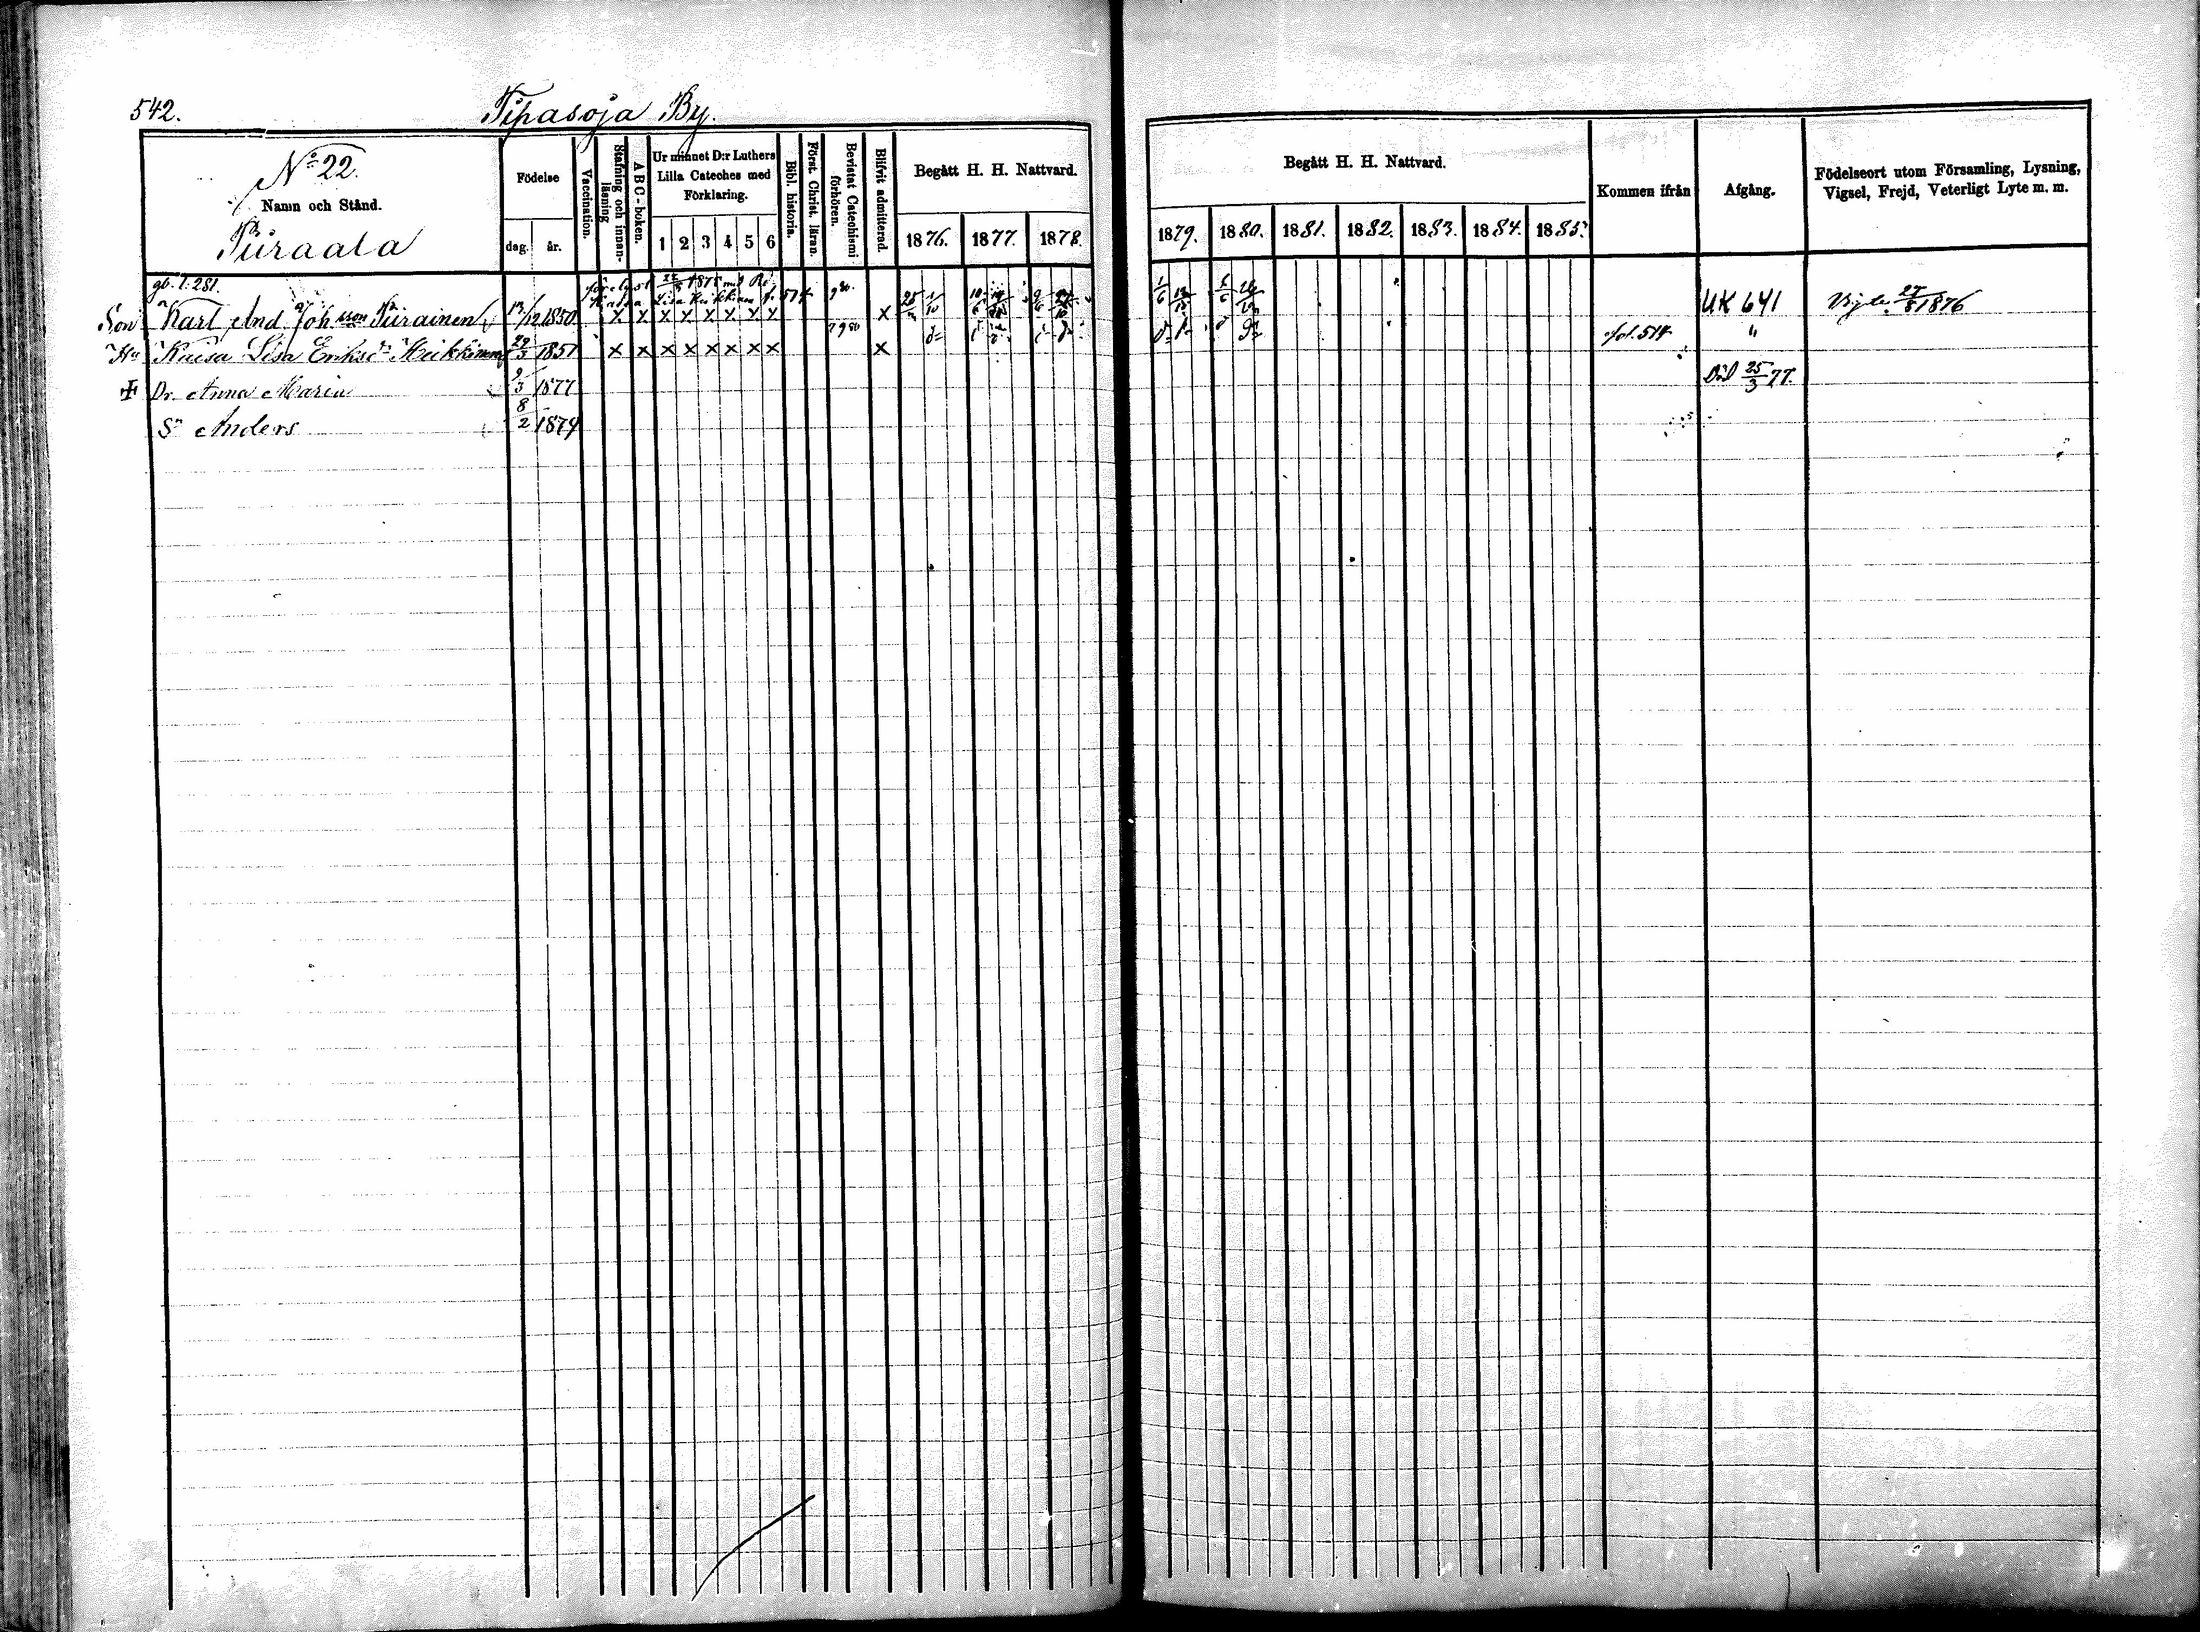 542. Tipasoja By.
No 22.
Namn och Stånd.
Piiraala
Födelse
dag. år.
Vaccination.
Stafning och innan-läsning
ABC-boken.
Ur minnet D:r Luthers Lilla Cateches med Förklaring.
1 2 3 4 5 6
Bibl. historia.
Först. Christ. läran.
Bevistat Catechismi förhören.
Blifvit admitterad.
Begått H. H. Nattvard.
1876. 1877. 1878.
Begått H. H. Nattvard.
1879. 1880. 1881. 1882. 1883. 1884. 1885.
Kommen ifrån
Afgång.
Födelseort utom Församling, Lysning, Vigsel, Frejd, Veterligt Lyte m. m.
gb. 1. 281.
Son Karl And. Joh:sson Piirainen 13/12 1850 X X X X X X X X X UK 641 27/8 1876
Hu Kaisa Lisa Eriksd:r Heikkinen 29/3 1851 X X X X X X X X X fol. 514 "
Dr. Anna Maria 9/3 1877 Död 25/3 77.
Sn Anders 8/2 1879